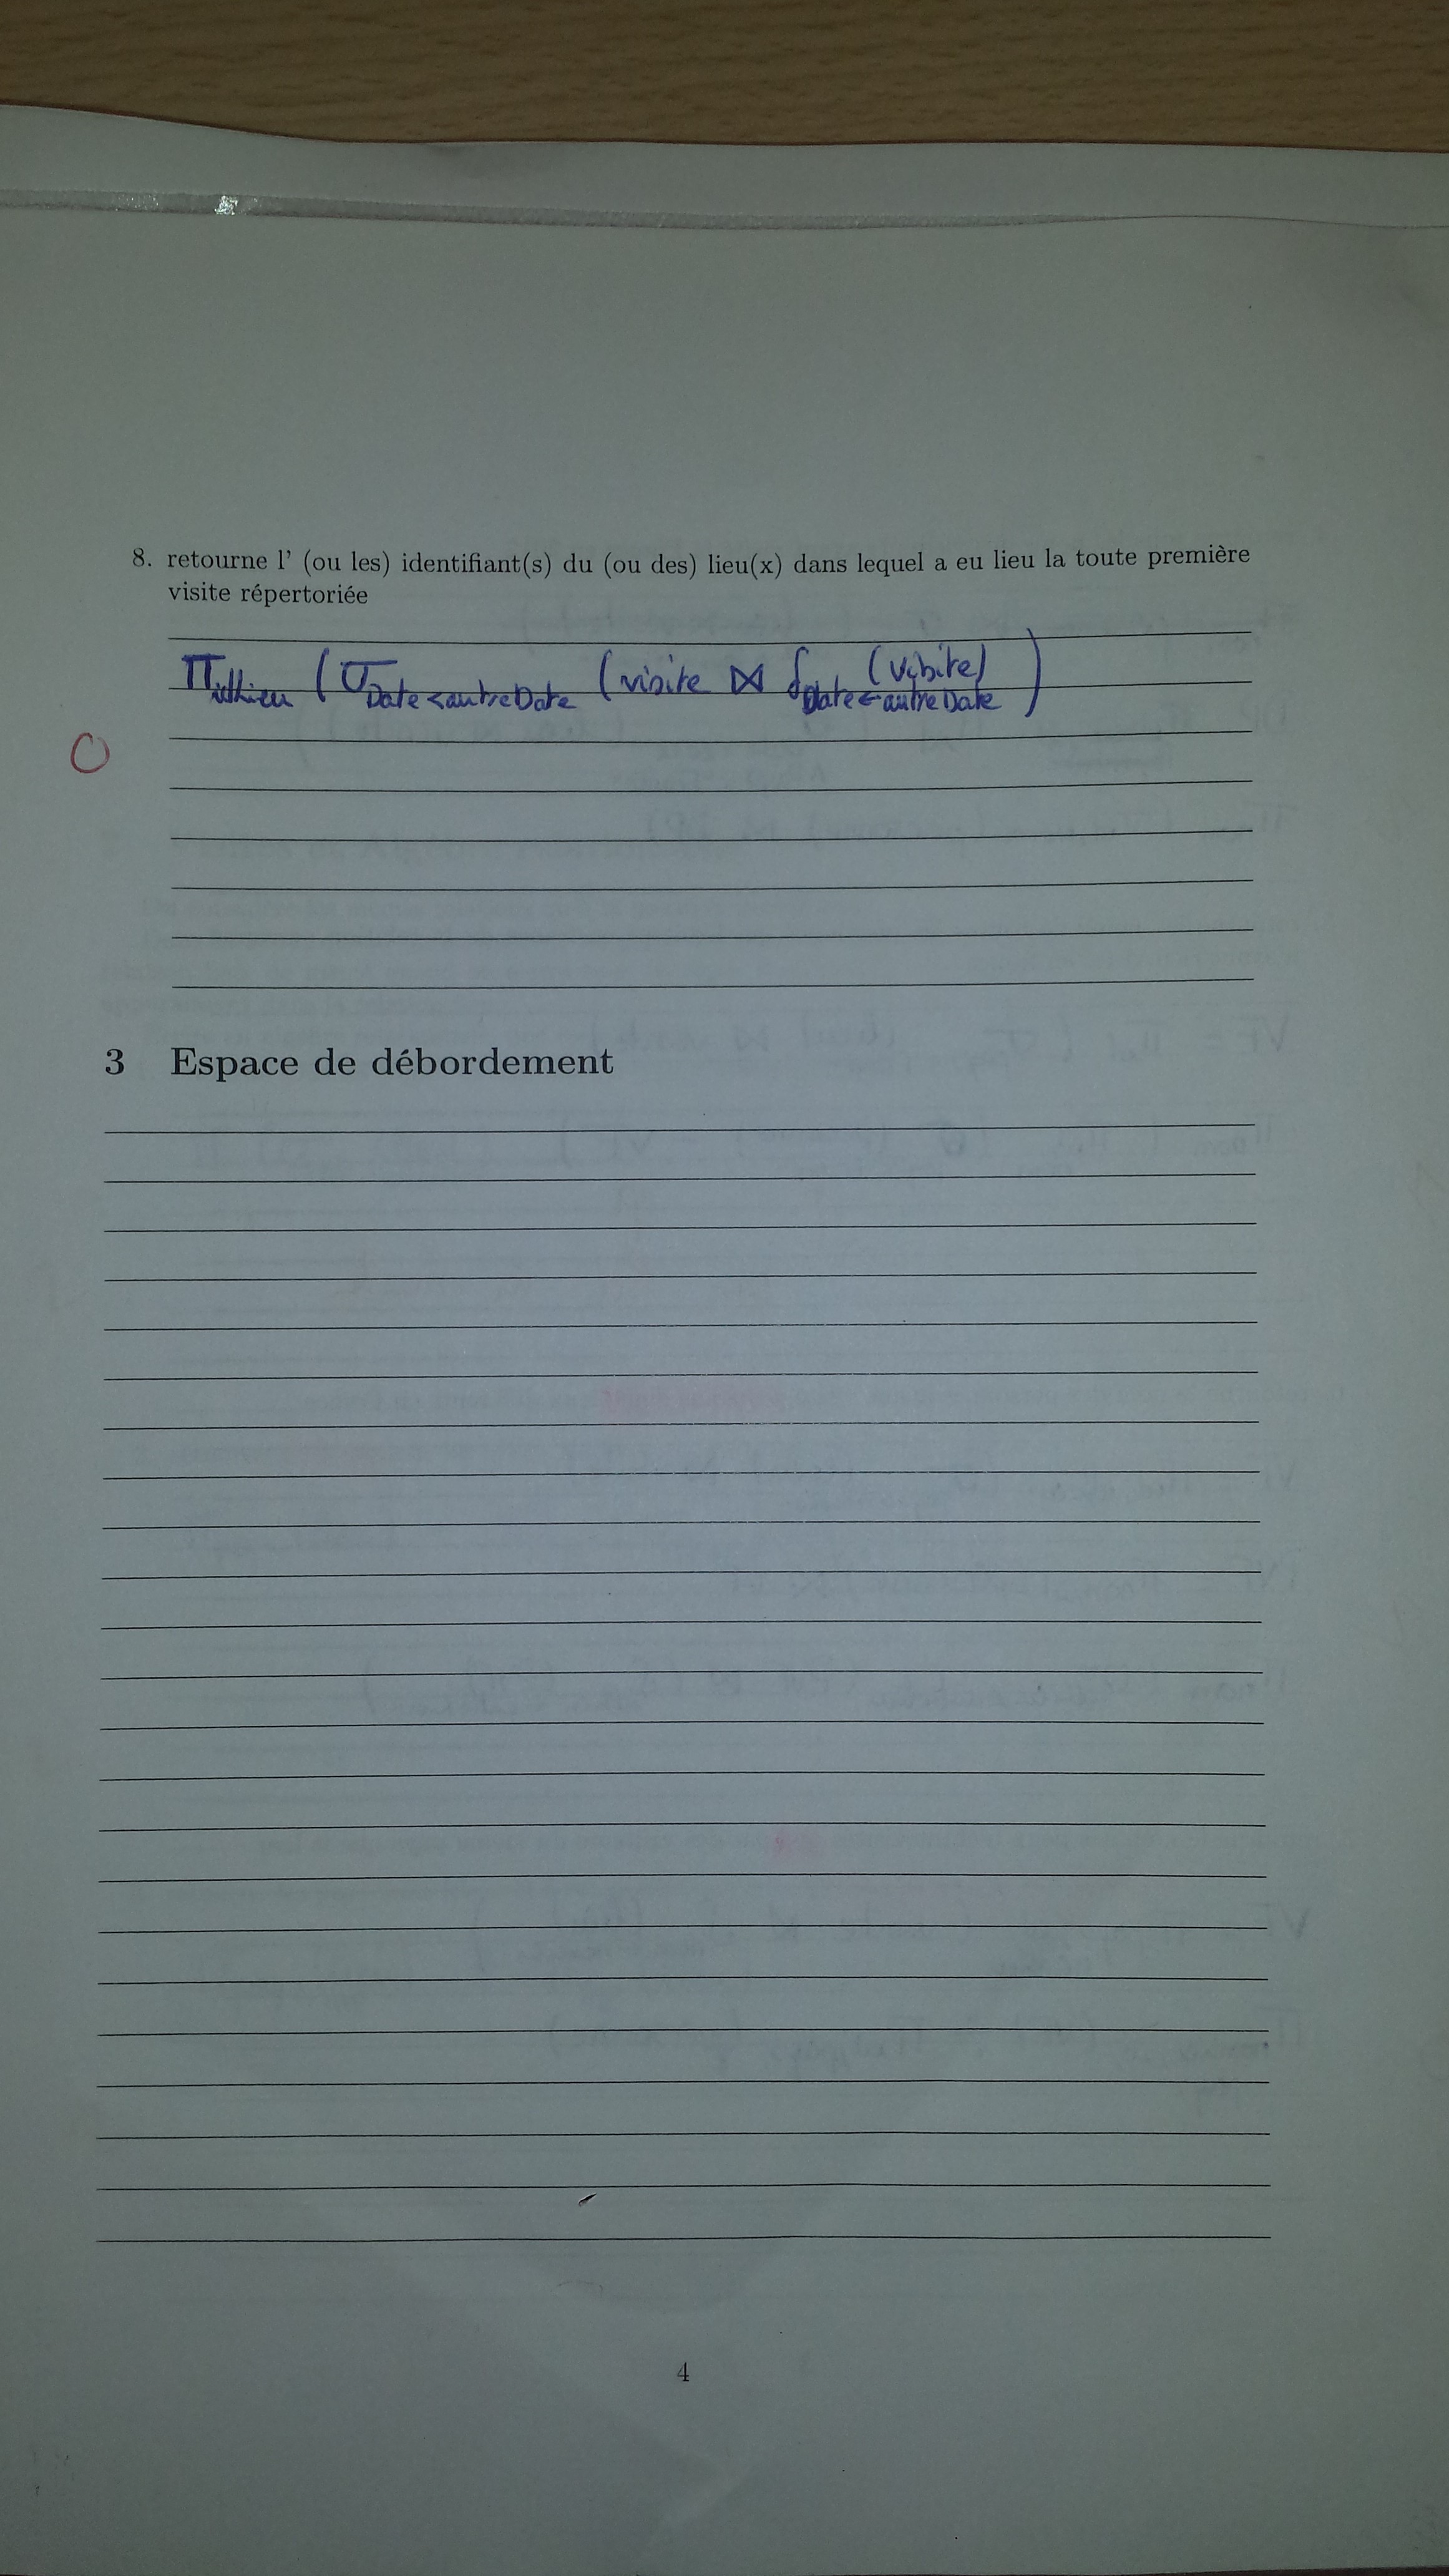 8. retourne l' (ou les) identifiant(s) du (ou des) lieu(x) dans lequel a eu lieu la toute première
visite répertoriée
π idlieu ( σ Date < autreDate ( visite ⋈ ρ Date ← autreDate (visite) )
0
3 Espace de débordement
4